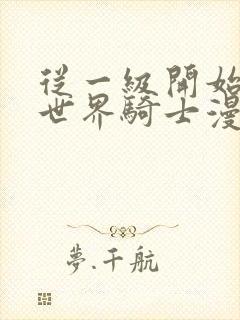 從一級開始
世界騎士漫
夢.千航